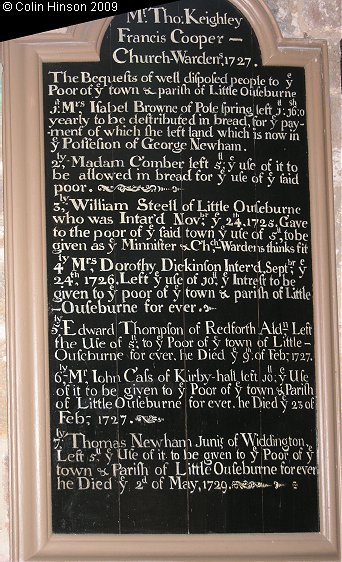 © Colin Hinson 2009
Mr. Tho. Keighley
Francis Cooper —
Church-Wardens, 1727.
The Bequests of well disposed people to ye
Poor of ye town & parish of Little Ouseburne
1st Mrs Isabel Browne of Pole spring left
yearly to be destributed in bread, for ye pay-
ment of which she left land which is now in
ye Possesion of George Newham.
2ly Madam Comber left ye use of it to
be allowed in bread for ye use of ye said
poor.
3ly William Steell of Little Ouseburne
who was Intar'd Novbr ye 24th, 1725, Gave
to the poor of ye said town ye use of 5ll, to be
given as ye Minnister & Chch Wardens thinks fit
4ly Mrs, Dorothy Dickinson Inter'd, Septbr ye
24th, 1726, Left ye use of 10ll, ye Intrest to be
given to ye poor of ye town & parish of Little
-Ouseburne for ever.
5ly Edward Thompson of Redforth Aldn Left
the Use of 5ll: to ye Poor of ye town of Little-
Ouseburne for ever, he Died ye 9th, of Feb; 1727.
6ly Mr. Iohn Cass of Kirby-hall left 10ll; ye Use
of it to be given to ye Poor of ye town & Parish
of Little Ouseburne for ever, he Died ye 23 of
Feb; 1727.
7ly Thomas Newham Junir of Widdington
Left 5ll ye Use of it to be given to ye Poor of ye
town & Parish of Little Ouseburne for ever
he Died ye 2d of May, 1729.